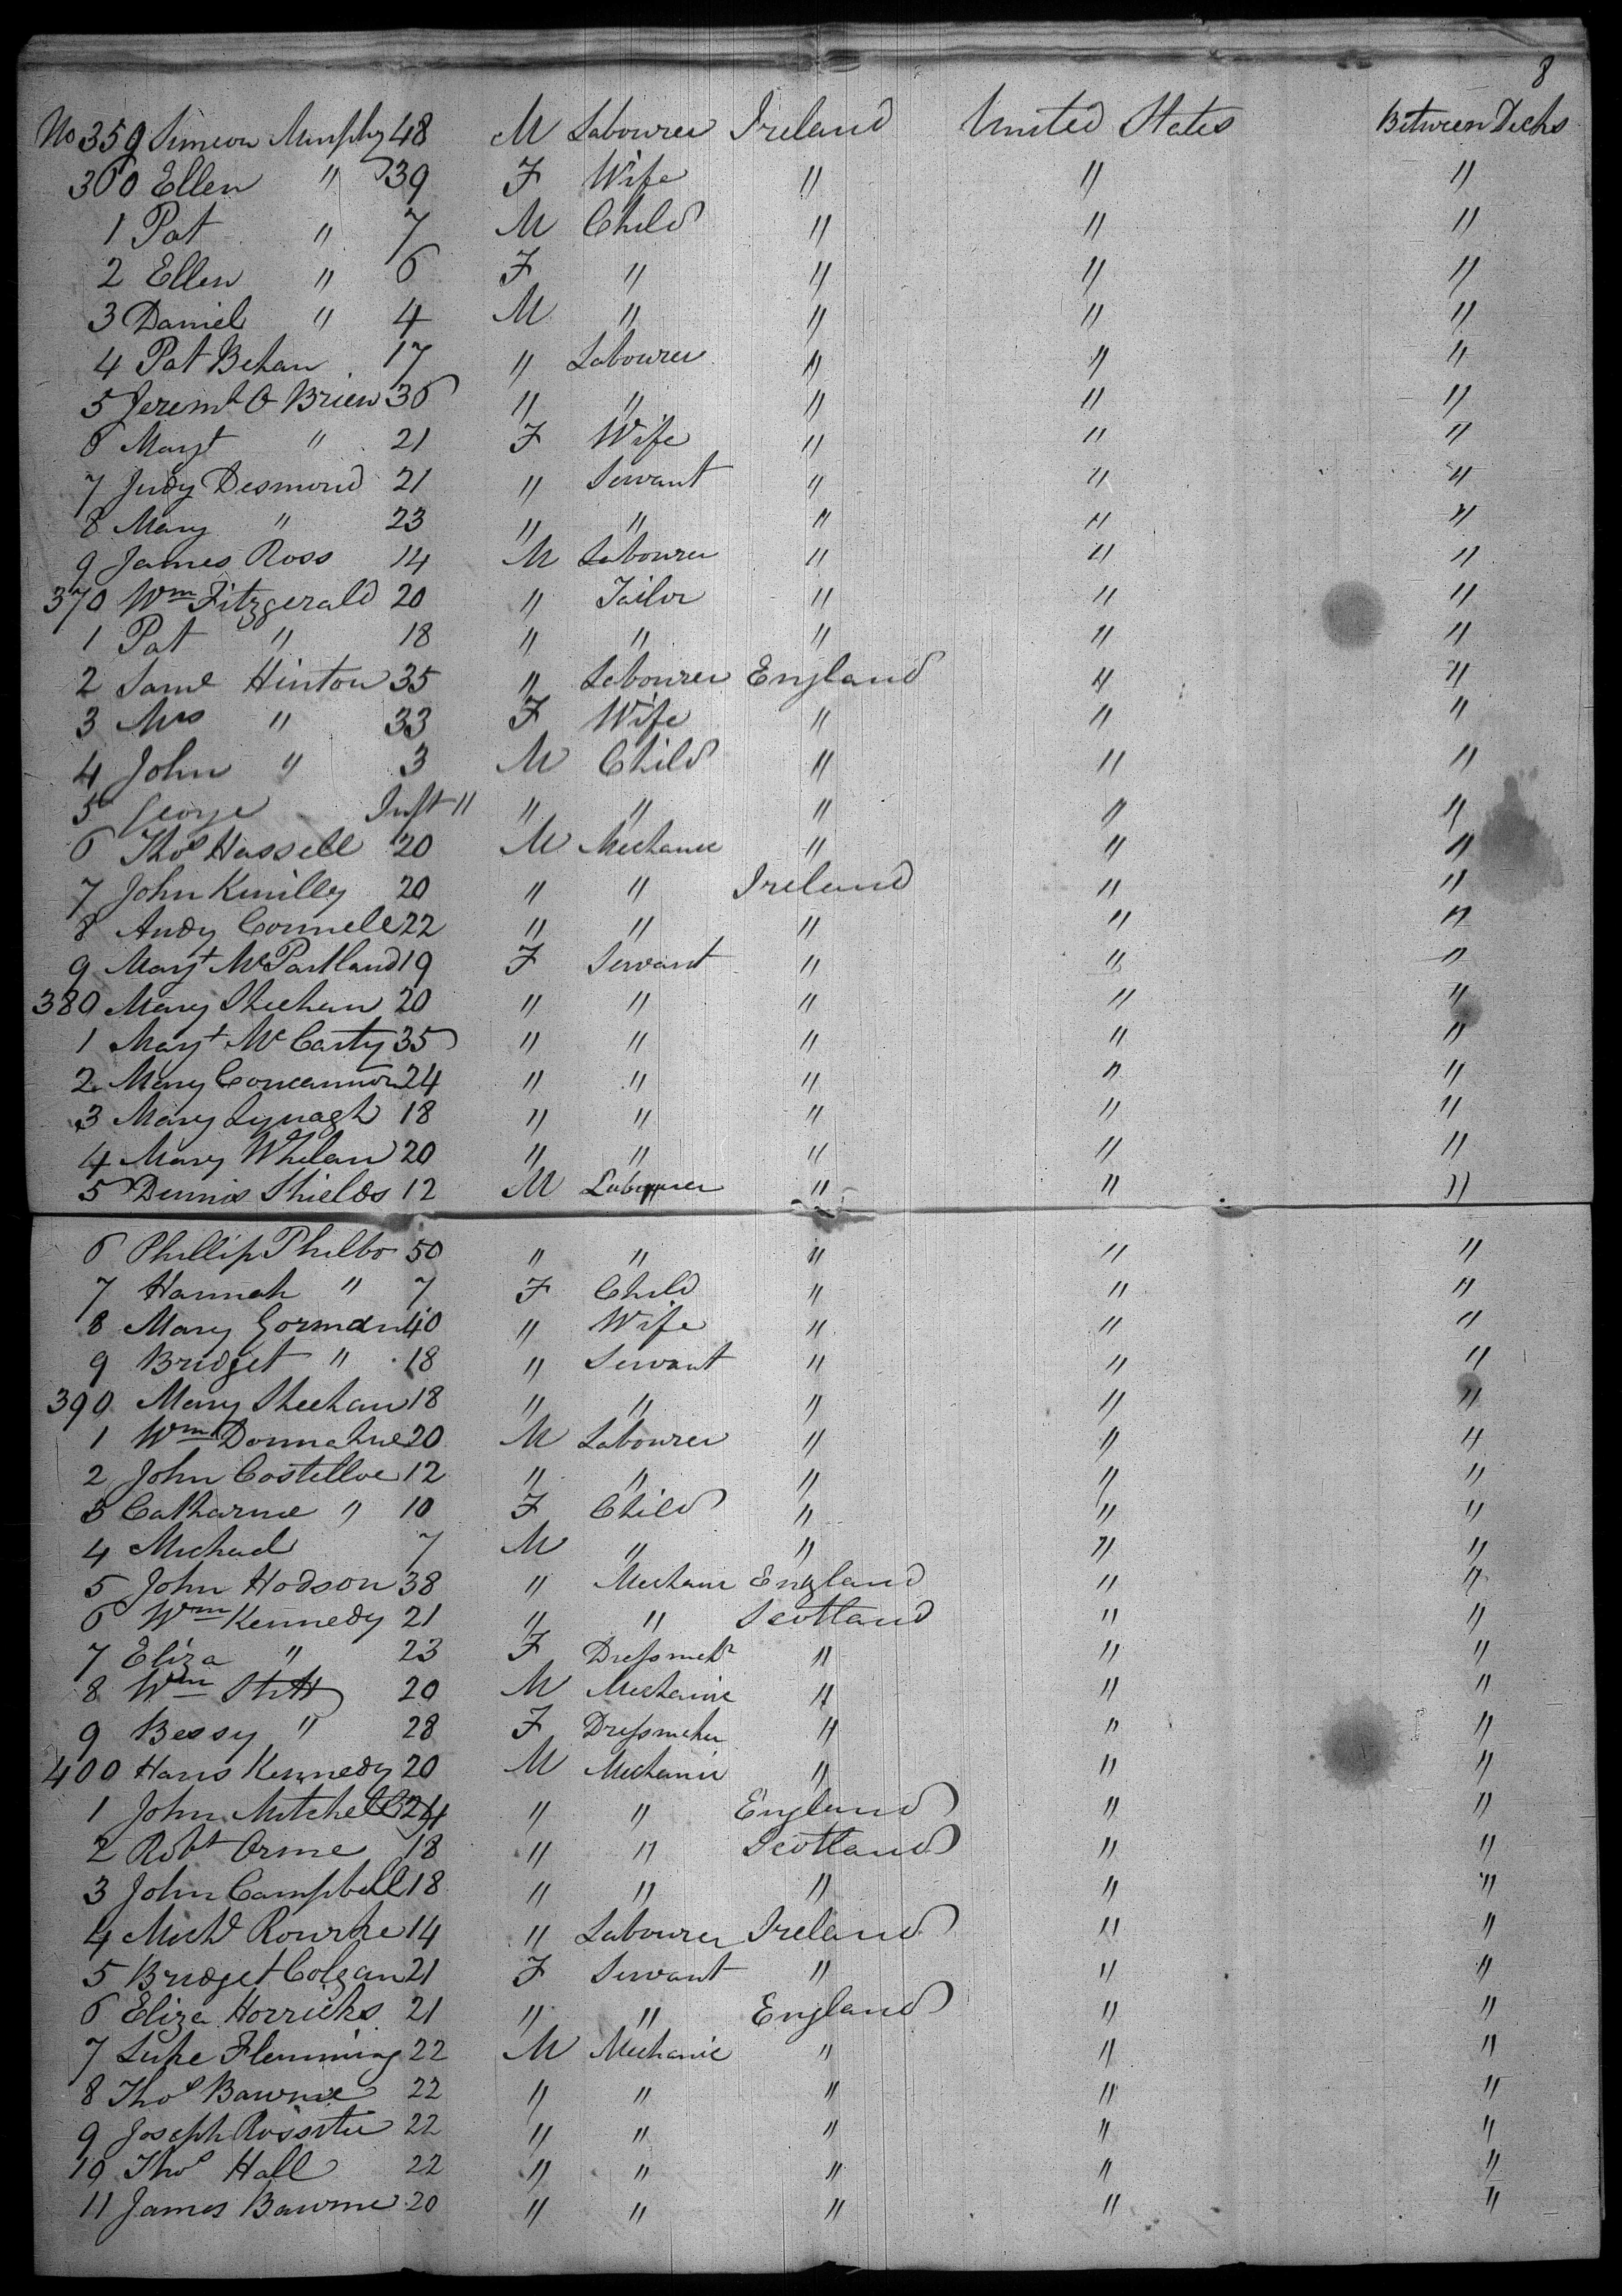 8
No 359 Simeon Murphy 48 M Labourer Ireland United States Between Decks
360 Ellen " 39 F Wife " " "
1 Pat " 7 M Child " " "
2 Ellen " 6 F " " " "
3 Daniel " 4 M " " " "
4 Pat Behan 17 " Labourer " " "
5 Jeremh O Brien 36 " " " " "
6 Margt " 21 F Wife " " "
7 Judy Desmond 21 " Servant " " "
8 Mary " 23 " " " " "
9 James Ross 14 M Labourer " " "
370 Wm Fitzgerald 20 " Tailor " " "
1 Pat " 18 " " " " "
2 Saml Hinton 35 " Labourer England " "
3 Mrs " 33 F Wife " " "
4 John " 3 M Child " " "
5 George Inft " " " " " "
6 Thos Hassell 20 M Mechanic " " "
7 John Kinilly 20 " " Ireland " "
8 Andy Connell 22 " " " " "
9 Margt McPartland 19 F Servant " " "
380 Mary Sheehan 20 " " " " "
1 Margt McCarty 35 " " " " "
2 Mary Concannon 24 " " " " "
3 Mary Lynagh 18 " " " " "
4 Mary Whelan 20 " " " " "
5 Dennis Shields 12 M Labourer " " "
6 Phillip Philbo 50 " " " " "
7 Hannah " 7 F Child " " "
8 Mary Gorman 40 " Wife " " "
9 Bridget " 18 " Servant " " "
390 Mary Sheehan 18 " " " " "
1 Wm Donnahue 20 M Labourer " " "
2 John Costelloe 12 " " " " "
3 Catharine " 10 F Child " " "
4 Michael 7 M " " " "
5 John Hodson 38 " Mechanic England " "
6 Wm Kennedy 21 " " Scotland " "
7 Eliza " 23 F Dressmkr " " "
8 Wm Stitt 20 M Mechanic " " "
9 Bessy " 28 F Dressmaker " " "
400 Hans Kennedy 20 M Mechanic " " "
1 John Mitchell 24 " " England " "
2 Robt Orme 18 " " Scotland " "
3 John Campbell 18 " " " " "
4 Michl Rourke 14 " Labourer Ireland " "
5 Bridget Colgan 21 F Servant " " "
6 Eliza Horricks 21 " " England " "
7 Luke Flemming 22 M Mechanic " " "
8 Thos Bawme 22 " " " " "
9 Joseph Rossitu 22 " " " " "
10 Thos Hall 22 " " " " "
11 James Bawme 20 " " " " "